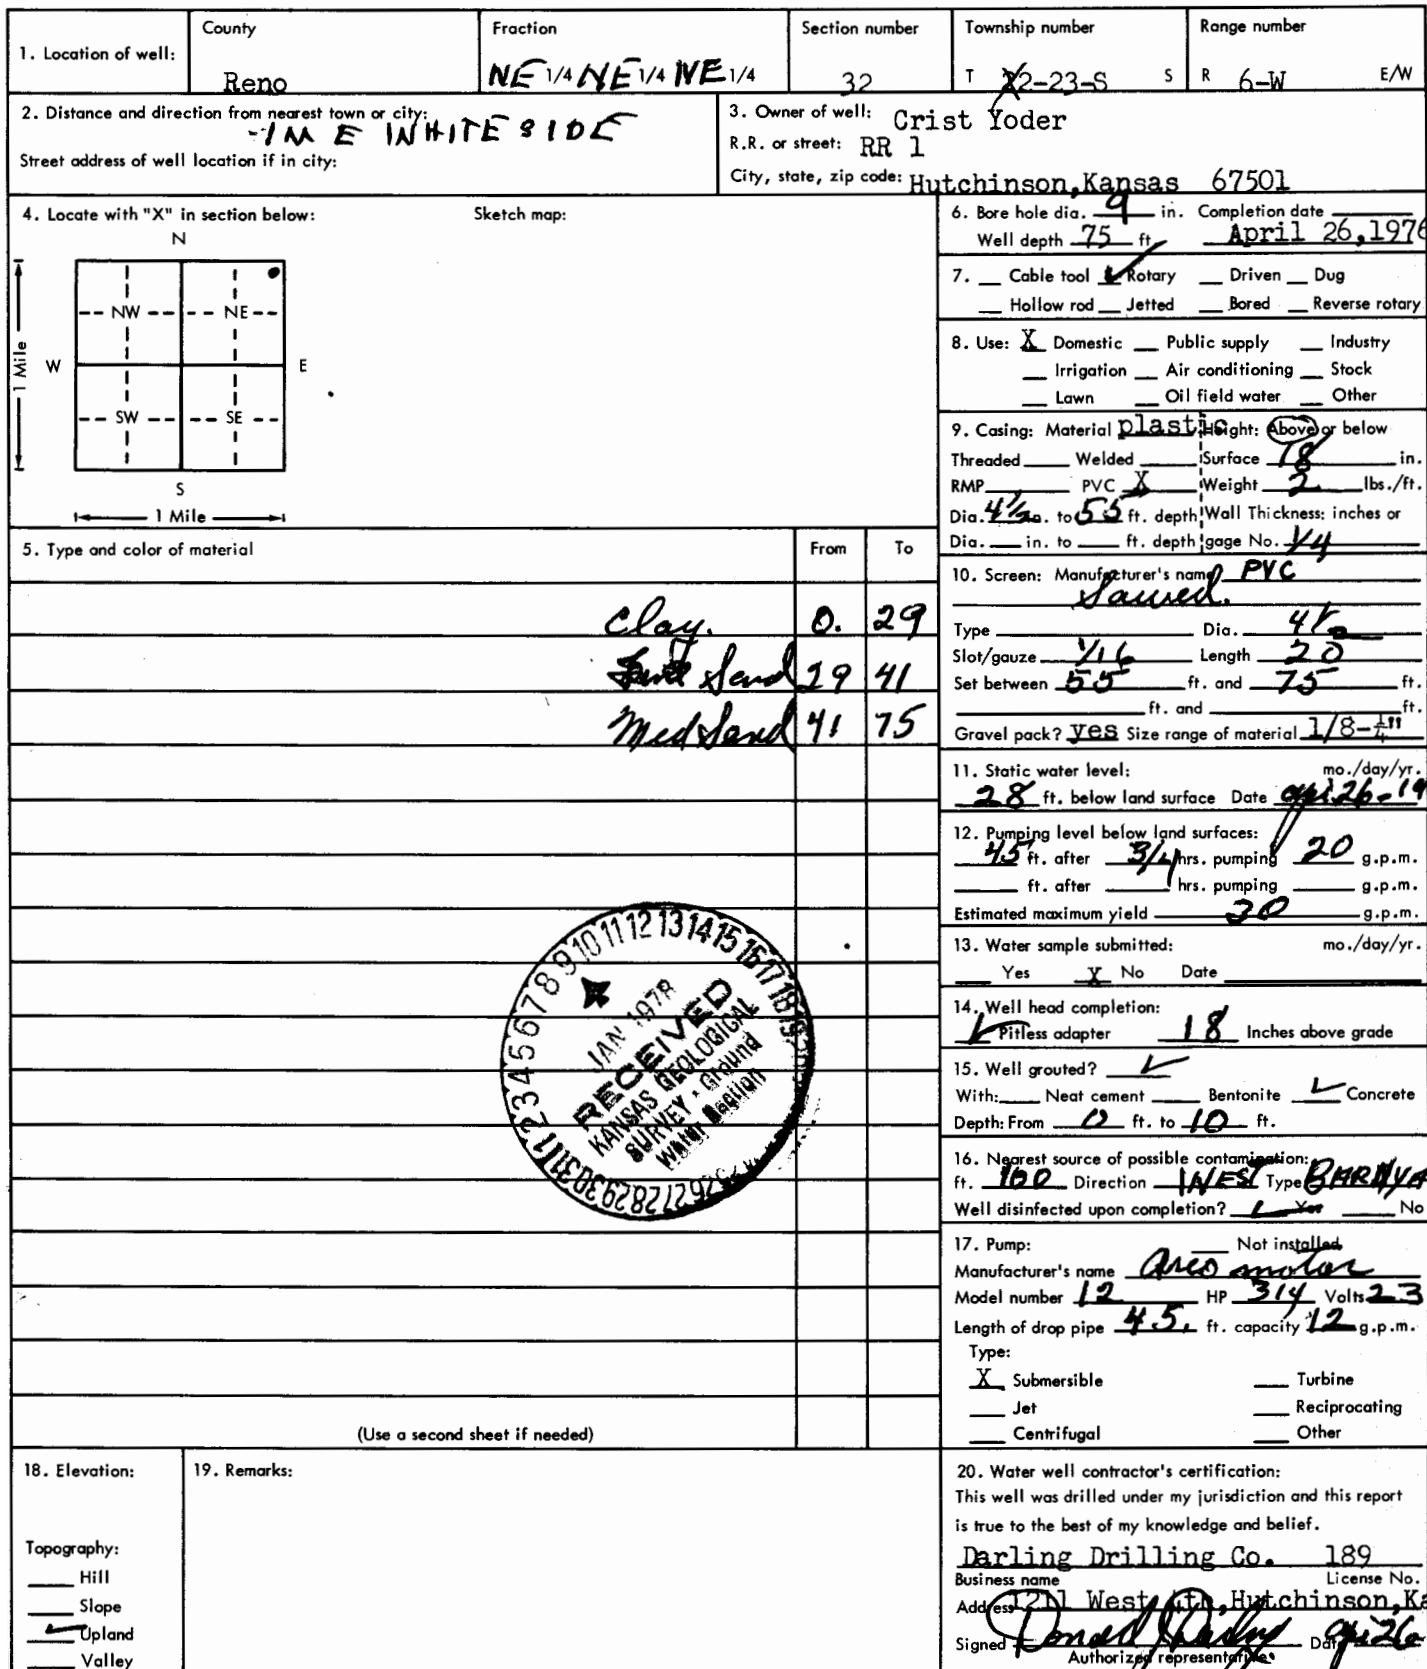 1. Location of well:
County
Reno
Fraction
NE 1/4 NE 1/4 NE 1/4
Section number
32
Township number
T 22-23-S S
Range number
R 6-W E/W
2. Distance and direction from nearest town or city:
-1M E WHITESIDE
Street address of well location if in city:
3. Owner of well: Crist Yoder
R.R. or street: RR 1
City, state, zip code: Hutchinson,Kansas 67501
4. Locate with "X" in section below:
Sketch map:
N
NW NE
W E
1 Mile
SW SE
S
1 Mile
5. Type and color of material From To
Clay. 0. 29
Sand 29 41
Med Sand 41 75
(Use a second sheet if needed)
JAN 1978
RECEIVED
KANSAS GEOLOGICAL
SURVEY - Ground
Water Section
6. Bore hole dia. 9 in. Completion date
Well depth 75 ft. April 26,1976
7. Cable tool ✓ Rotary Driven Dug
Hollow rod Jetted Bored Reverse rotary
8. Use: X Domestic Public supply Industry
Irrigation Air conditioning Stock
Lawn Oil field water Other
9. Casing: Material plastic Height: Above or below
Threaded Welded Surface 18 in.
RMP PVC X Weight 2 lbs./ft.
Dia. 4 1/2 in. to 55 ft. depth Wall Thickness: inches or
Dia. in. to ft. depth gage No. 1/4
10. Screen: Manufacturer's name PVC
Sawed.
Type Dia. 4 1/2
Slot/gauze 1/16 Length 20
Set between 55 ft. and 75 ft.
ft. and ft.
Gravel pack? yes Size range of material 1/8-1/4"
11. Static water level: mo./day/yr.
28 ft. below land surface Date Apr 26-19
12. Pumping level below land surfaces:
45 ft. after 3/4 hrs. pumping 20 g.p.m.
ft. after hrs. pumping g.p.m.
Estimated maximum yield 30 g.p.m.
13. Water sample submitted: mo./day/yr.
Yes X No Date
14. Well head completion:
✓ Pitless adapter 18 Inches above grade
15. Well grouted? ✓
With: Neat cement Bentonite ✓ Concrete
Depth: From 0 ft. to 10 ft.
16. Nearest source of possible contamination:
ft. 100 Direction WEST Type BARNYA
Well disinfected upon completion? ✓ Yes No
17. Pump: Not installed
Manufacturer's name Areo motor
Model number 12 HP 3/4 Volts 23
Length of drop pipe 45. ft. capacity 12 g.p.m.
Type:
X Submersible Turbine
Jet Reciprocating
Centrifugal Other
18. Elevation:
Topography:
Hill
Slope
✓ Upland
Valley
19. Remarks:
20. Water well contractor's certification:
This well was drilled under my jurisdiction and this report
is true to the best of my knowledge and belief.
Darling Drilling Co. 189
Business name License No.
Address 1211 West 4th, Hutchinson, Ka
Signed Donald Darling Date Apr 26
Authorized representative